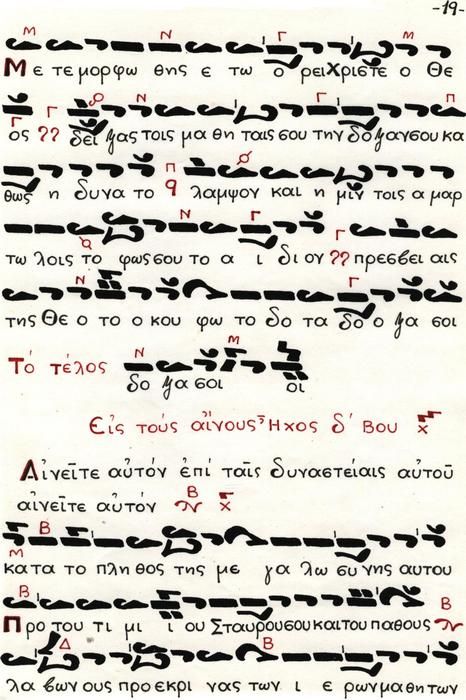 -19-
Μ Ν Γ Μ
Με τε μορφω θης ε τω ο ρει Χριστε ο Θε
Γ Γ Ν Γ Π
ος ?? δει ξας τοις μα θη ταις σου την δο ξαν σου κα
Π
θως η δυνα το q λαμψον και η μιν τοις α μαρ
Ν Γ Γ
τω λοις το φως σου το α ι δι ον ?? πρεσβει αις
Ν Γ
της Θε ο το ο κου φω το δο τα δο ο ξα σοι
Τὸ τέλος Ν Μ
δο ξα σοι οι
Εἰς τοὺς αἴνους Ἦχος δ' Βου
Αἰνεῖτε αὐτόν ἐπί ταῖς δυναστείαις αὐτοῦ
αἰνεῖτε αὐτόν Β
Β Μ
κατα το πλη θος της με γα λω συ νης αυτου
Β Β
Προ του τι μι ι ου Σταυρου σου και του παθους
Δ Β
λα βων ους προ εκρι νας των ι ε ρων μαθη των